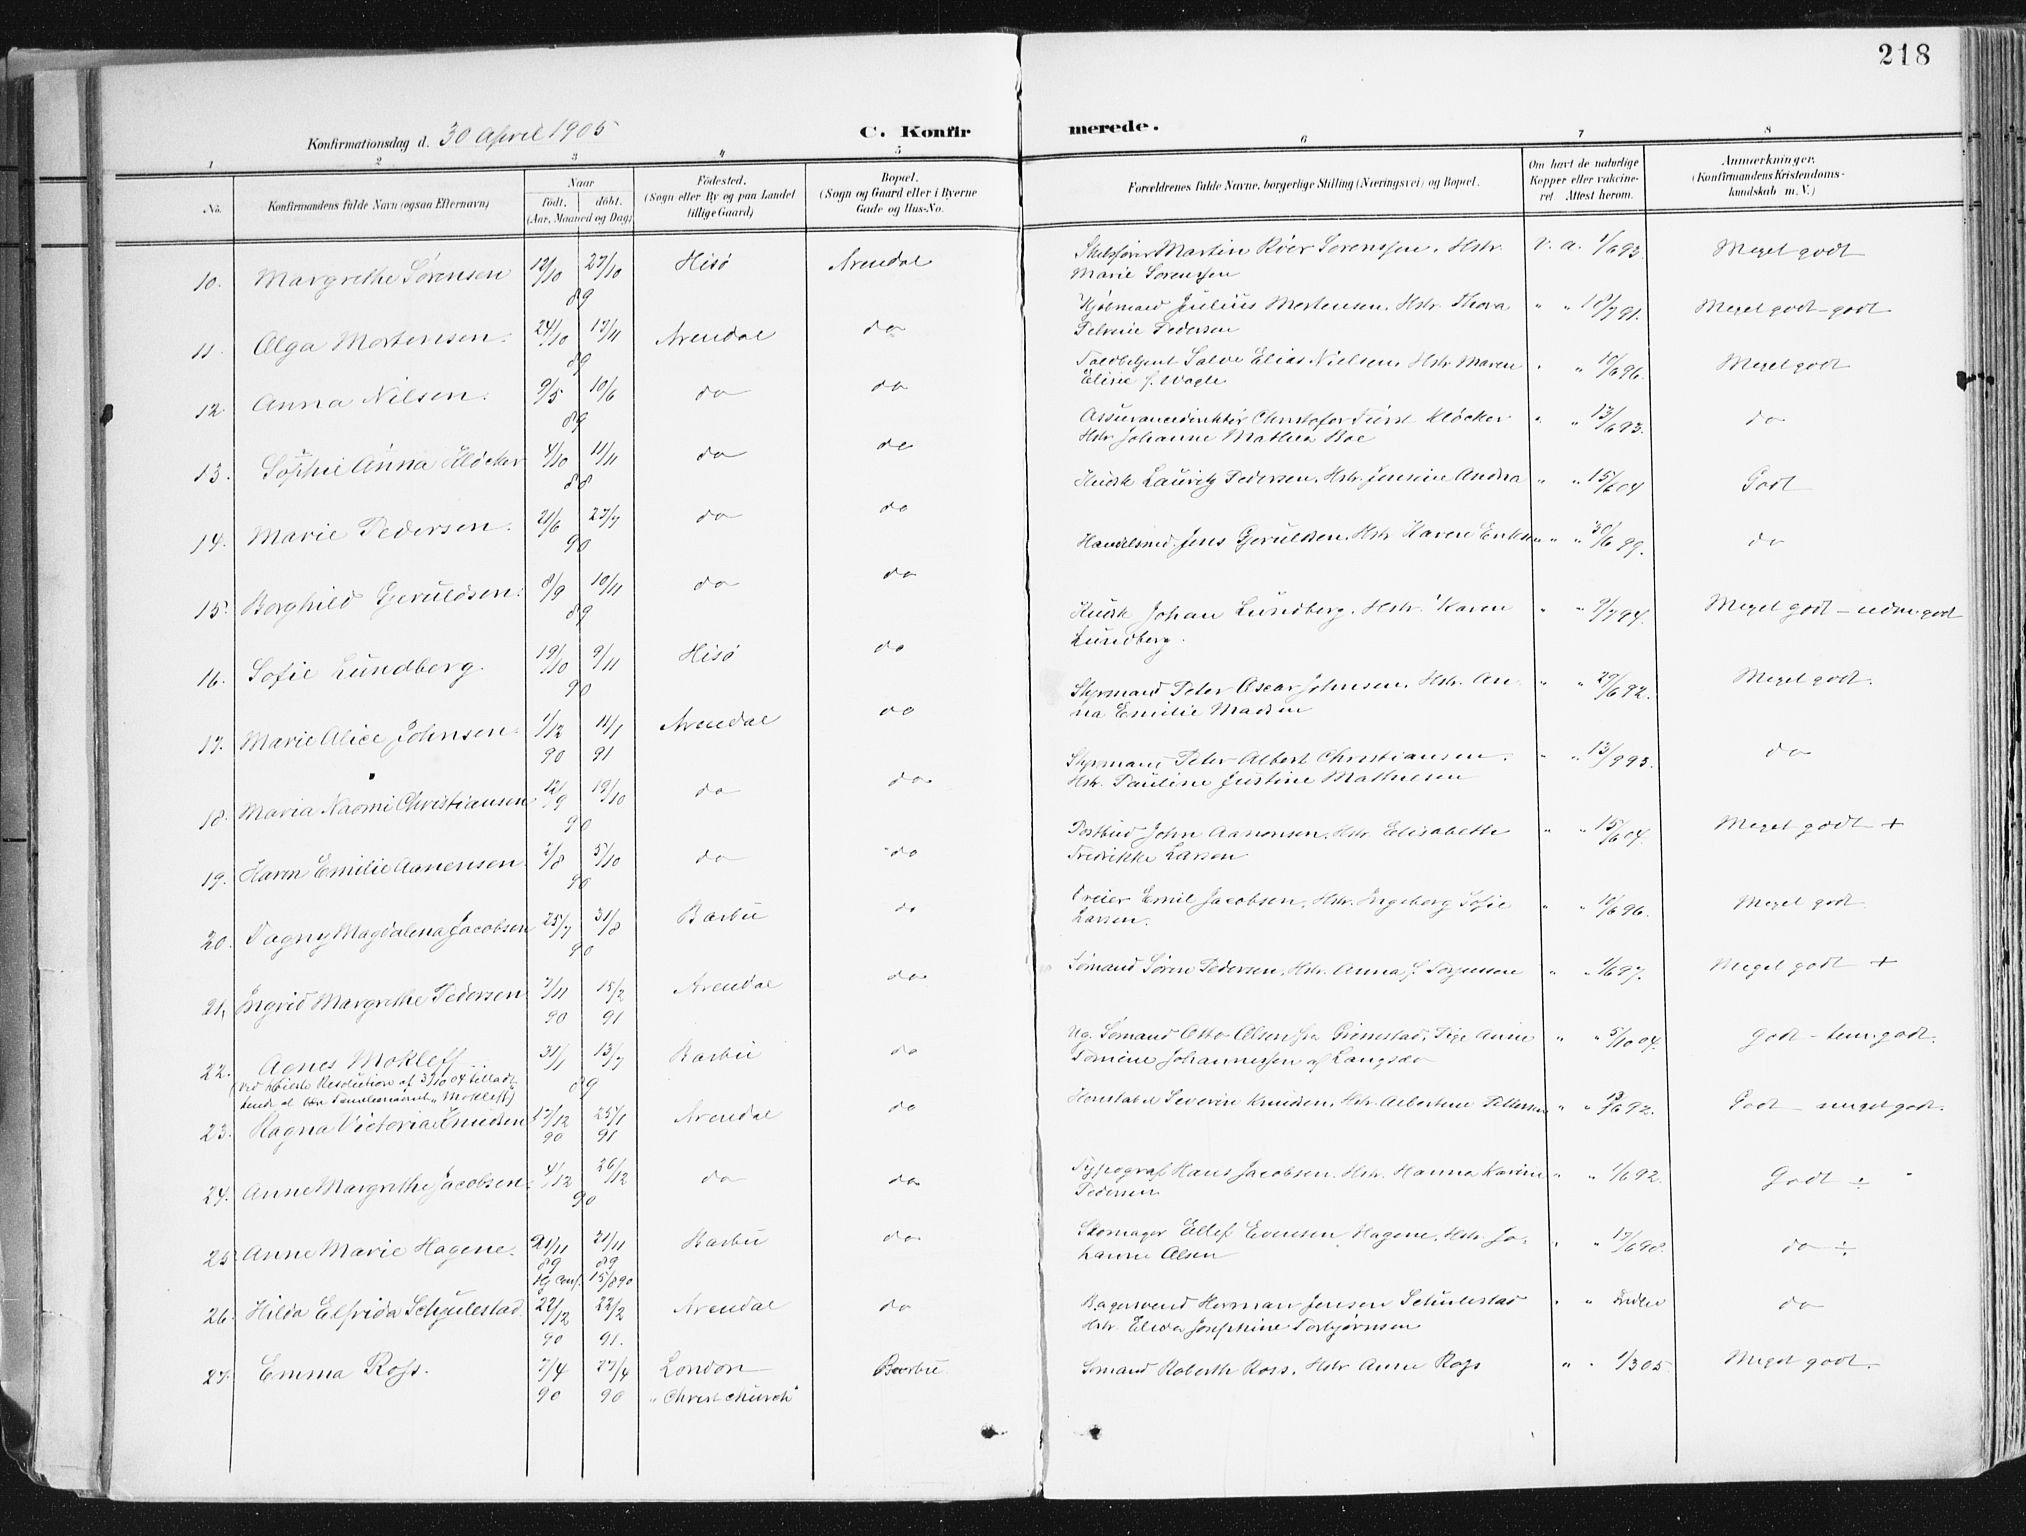 218
Konfirmationsdag d. 30 April 1905
C. Konfirmerede.
1 2 3 4 5 6 7 8
No. Konfirmandens fulde Navn (ogsaa Efternavn) Naar født. døbt. (Aar, Maaned og Dag) Fødested. (Sogn eller By og paa Landet tillige Gaard) Bopæl. (Sogn og Gaard eller i Byerne Gade og Hus-No. Forældrenes fulde Navne, borgerlige Stilling (Næringsvei) og Bopæl. Om havt de naturlige Kopper eller vakcineret. Attest herom. Anmærkninger. (Konfirmandens Kristendomskundskab m. V.)
10. Margrethe Sørensen 12/10 27/10 89 Hisø Arendal Martin Roer Sorenssen, Hstr. Marie Sorenssen v. a. 1/6 93. Meget godt
11. Olga Mortensen. 24/10 17/11 89 Arendal do Julius Mortensen, Hstr. Thora Pedersen " " 18/7 91. Meget godt - godt
12. Anna Nilsen. 9/5 10/6 89 do do Toldbetjent Salve Elias Nielsen, Hstr. Maren Elisie f. Wagle " " 10/6 96. Meget godt
13. Sophie Anna Kløcker 4/10 11/11 88 do do Assurancedirektør Christofer Fürst Kløcker Hstr. Johanne Mathea Boe " " 13/6 93. do
14. Marie Pedersen. 21/6 27/7 90 do do Kudsk Lauritz Pedersen, Hstr. Jensine Andrea " " 15/6 04 Godt
15. Borghild Gjeruldsen. 8/9 10/11 89 do do Handelsmd. Jens Gjeruldsen, Hstr. Karen Eriksen " " 30/6 99. do
16. Sofie Lundberg. 19/10 9/11 90 Hisø do Kudsk Johan Lundberg, Hstr. Karen Lundberg. " " 9/7 94. Meget godt - udm. godt
17. Marie Alice Johnsen. 1/12 90 11/1 91 Arendal do Styrmand Peter Oscar Johnsen, Hstr. Anna Emilie Madsen " " 29/6 92. Meget godt.
18. Maria Naomi Christiansen 12/9 19/10 90 do do Styrmand Peter Albert Christiansen. Hstr. Pauline Justine Mathiesen " " 13/9 93. do
19. Karen Emilie Aanensen. 2/8 5/10 90 do do Postbud John Aanonsen, Hstr. Elisabeth Fredrikke Larsen " " 15/6 04. Meget godt +
20. Dagny Magdalena Jacobsen 25/7 31/8 90 Barbu do Dreier Emil Jacobsen, Hstr. Ingeborg Sofie Larsen. " " 10/6 96. Meget godt
21. Ingrid Margrethe Pedersen 7/11 90 15/2 91 Arendal do Sømand Søren Pedersen, Hstr. Anna f. Torjussen " " 1/6 97. Meget godt +
22. Agnes Mokleff 31/1 13/7 89 Barbu do Ug. Sømand Otto Olsen fra Grimstad, Pige Anne Tomine Johannessen af Langsæv " " 5/10 04. Godt - tem. godt.
(Ved kgl. Resolution af 3/10 04 tilladt hende at bære Familienavnet "Mokleff")
23. Ragna Victoria Knudsen 17/12 90 25/1 91 Arendal do Konstabel Severin Knudsen, Hstr. Albertine Pettersen " " 18/6 92. Godt - meget godt.
24. Anne Margrethe Jacobsen. 4/12 26/12 90 do do Typograf Hans Jacobsen, Hstr. Hanna Karine Pedersen " " 1/6 92. Godt ÷
25. Anne Marie Hagene. 21/11 89 21/11 89 Barbu do Skomager Ellef Evensen Hagene, Hstr. Johanne Olsen " " 17/6 98. do ÷
Hj. conf. 15/8 90
26. Hilda Elfrida Schjulestad 22/12 90 22/2 91. Arendal do Bagersvend Herman Jensen Schulestad Hstr. Elida Josephine Torbjørnsen " " do
27. Emma Ross. 7/4 90 27/4 90 London "Christchurch" Barbu. Sømand Roberth Ross, Hstr. Anne Ross " " 1/3 05. Meget godt.